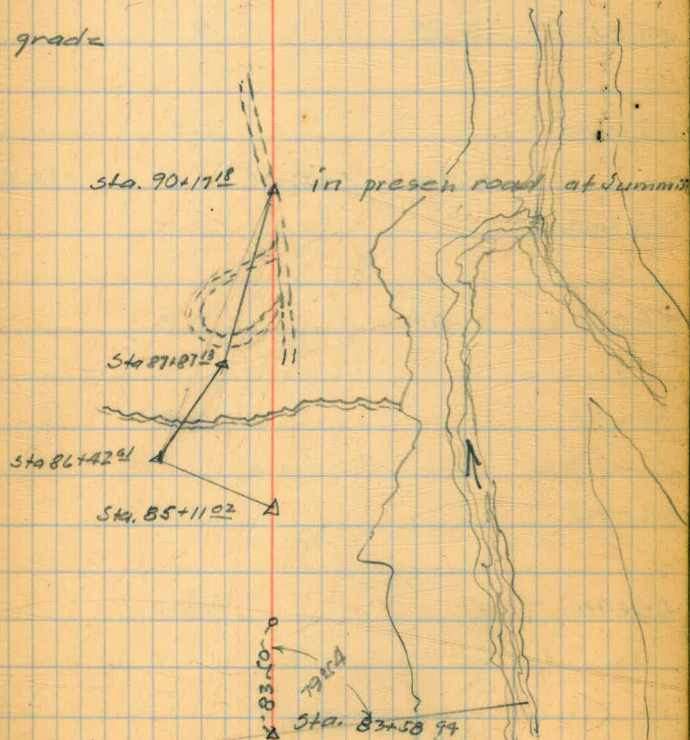 grade
Sta. 90+17 18 in presen road at Summit
Sta 87+87 13
Sta 86+42 61
Sta. 85+11 02
79°54
Sta. 83+58 94